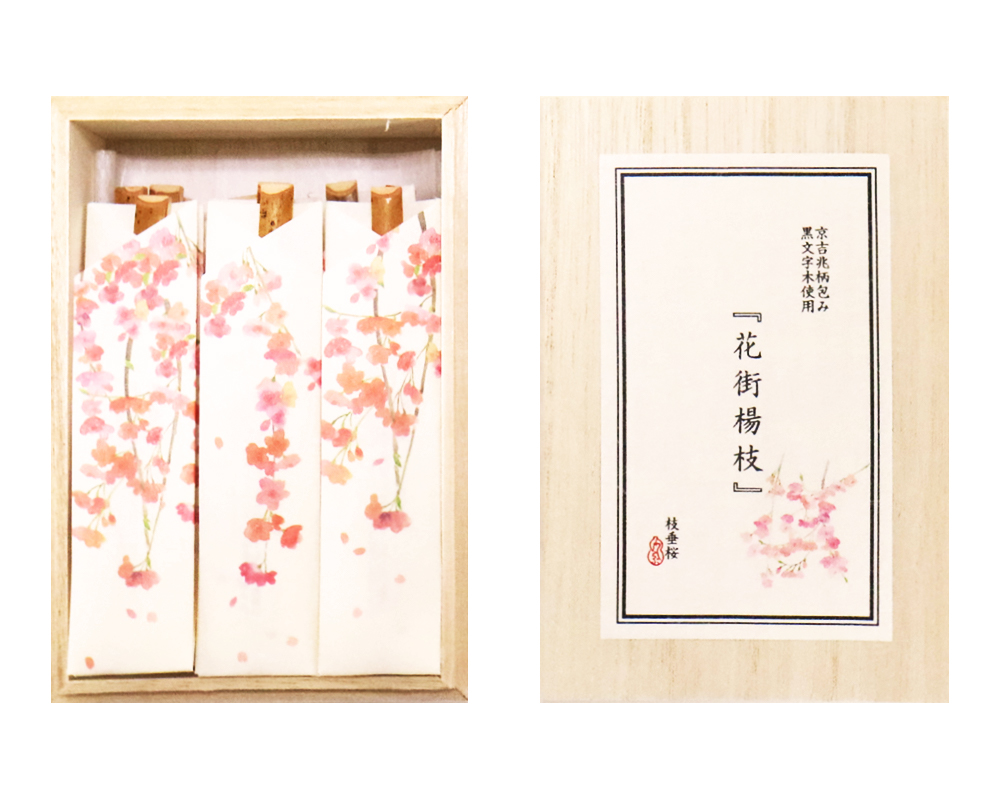 京吉兆柄包み
黒文字木使用
『花街楊枝』
枝垂桜